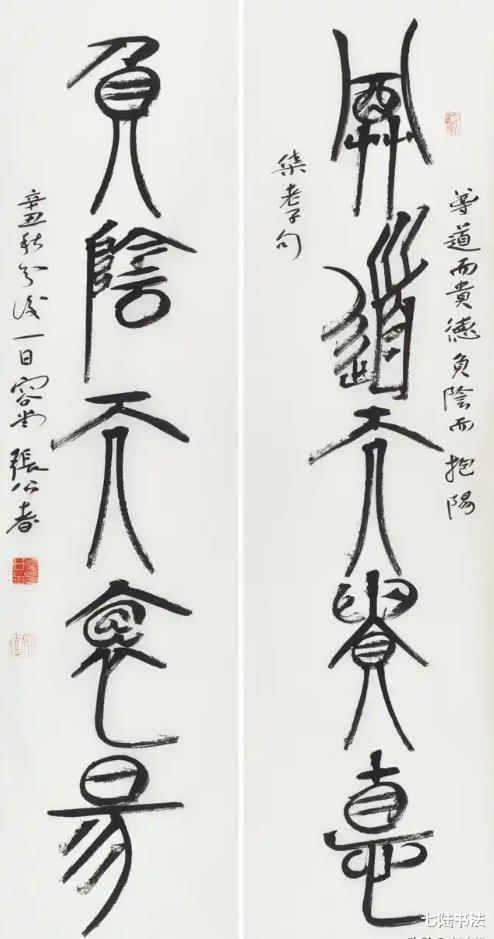 尊道而貴德負陰而抱陽
尊道而貴悳
集老子句
負陰而袌昜
辛丑秋分後一日容堂張公者
七陆书法